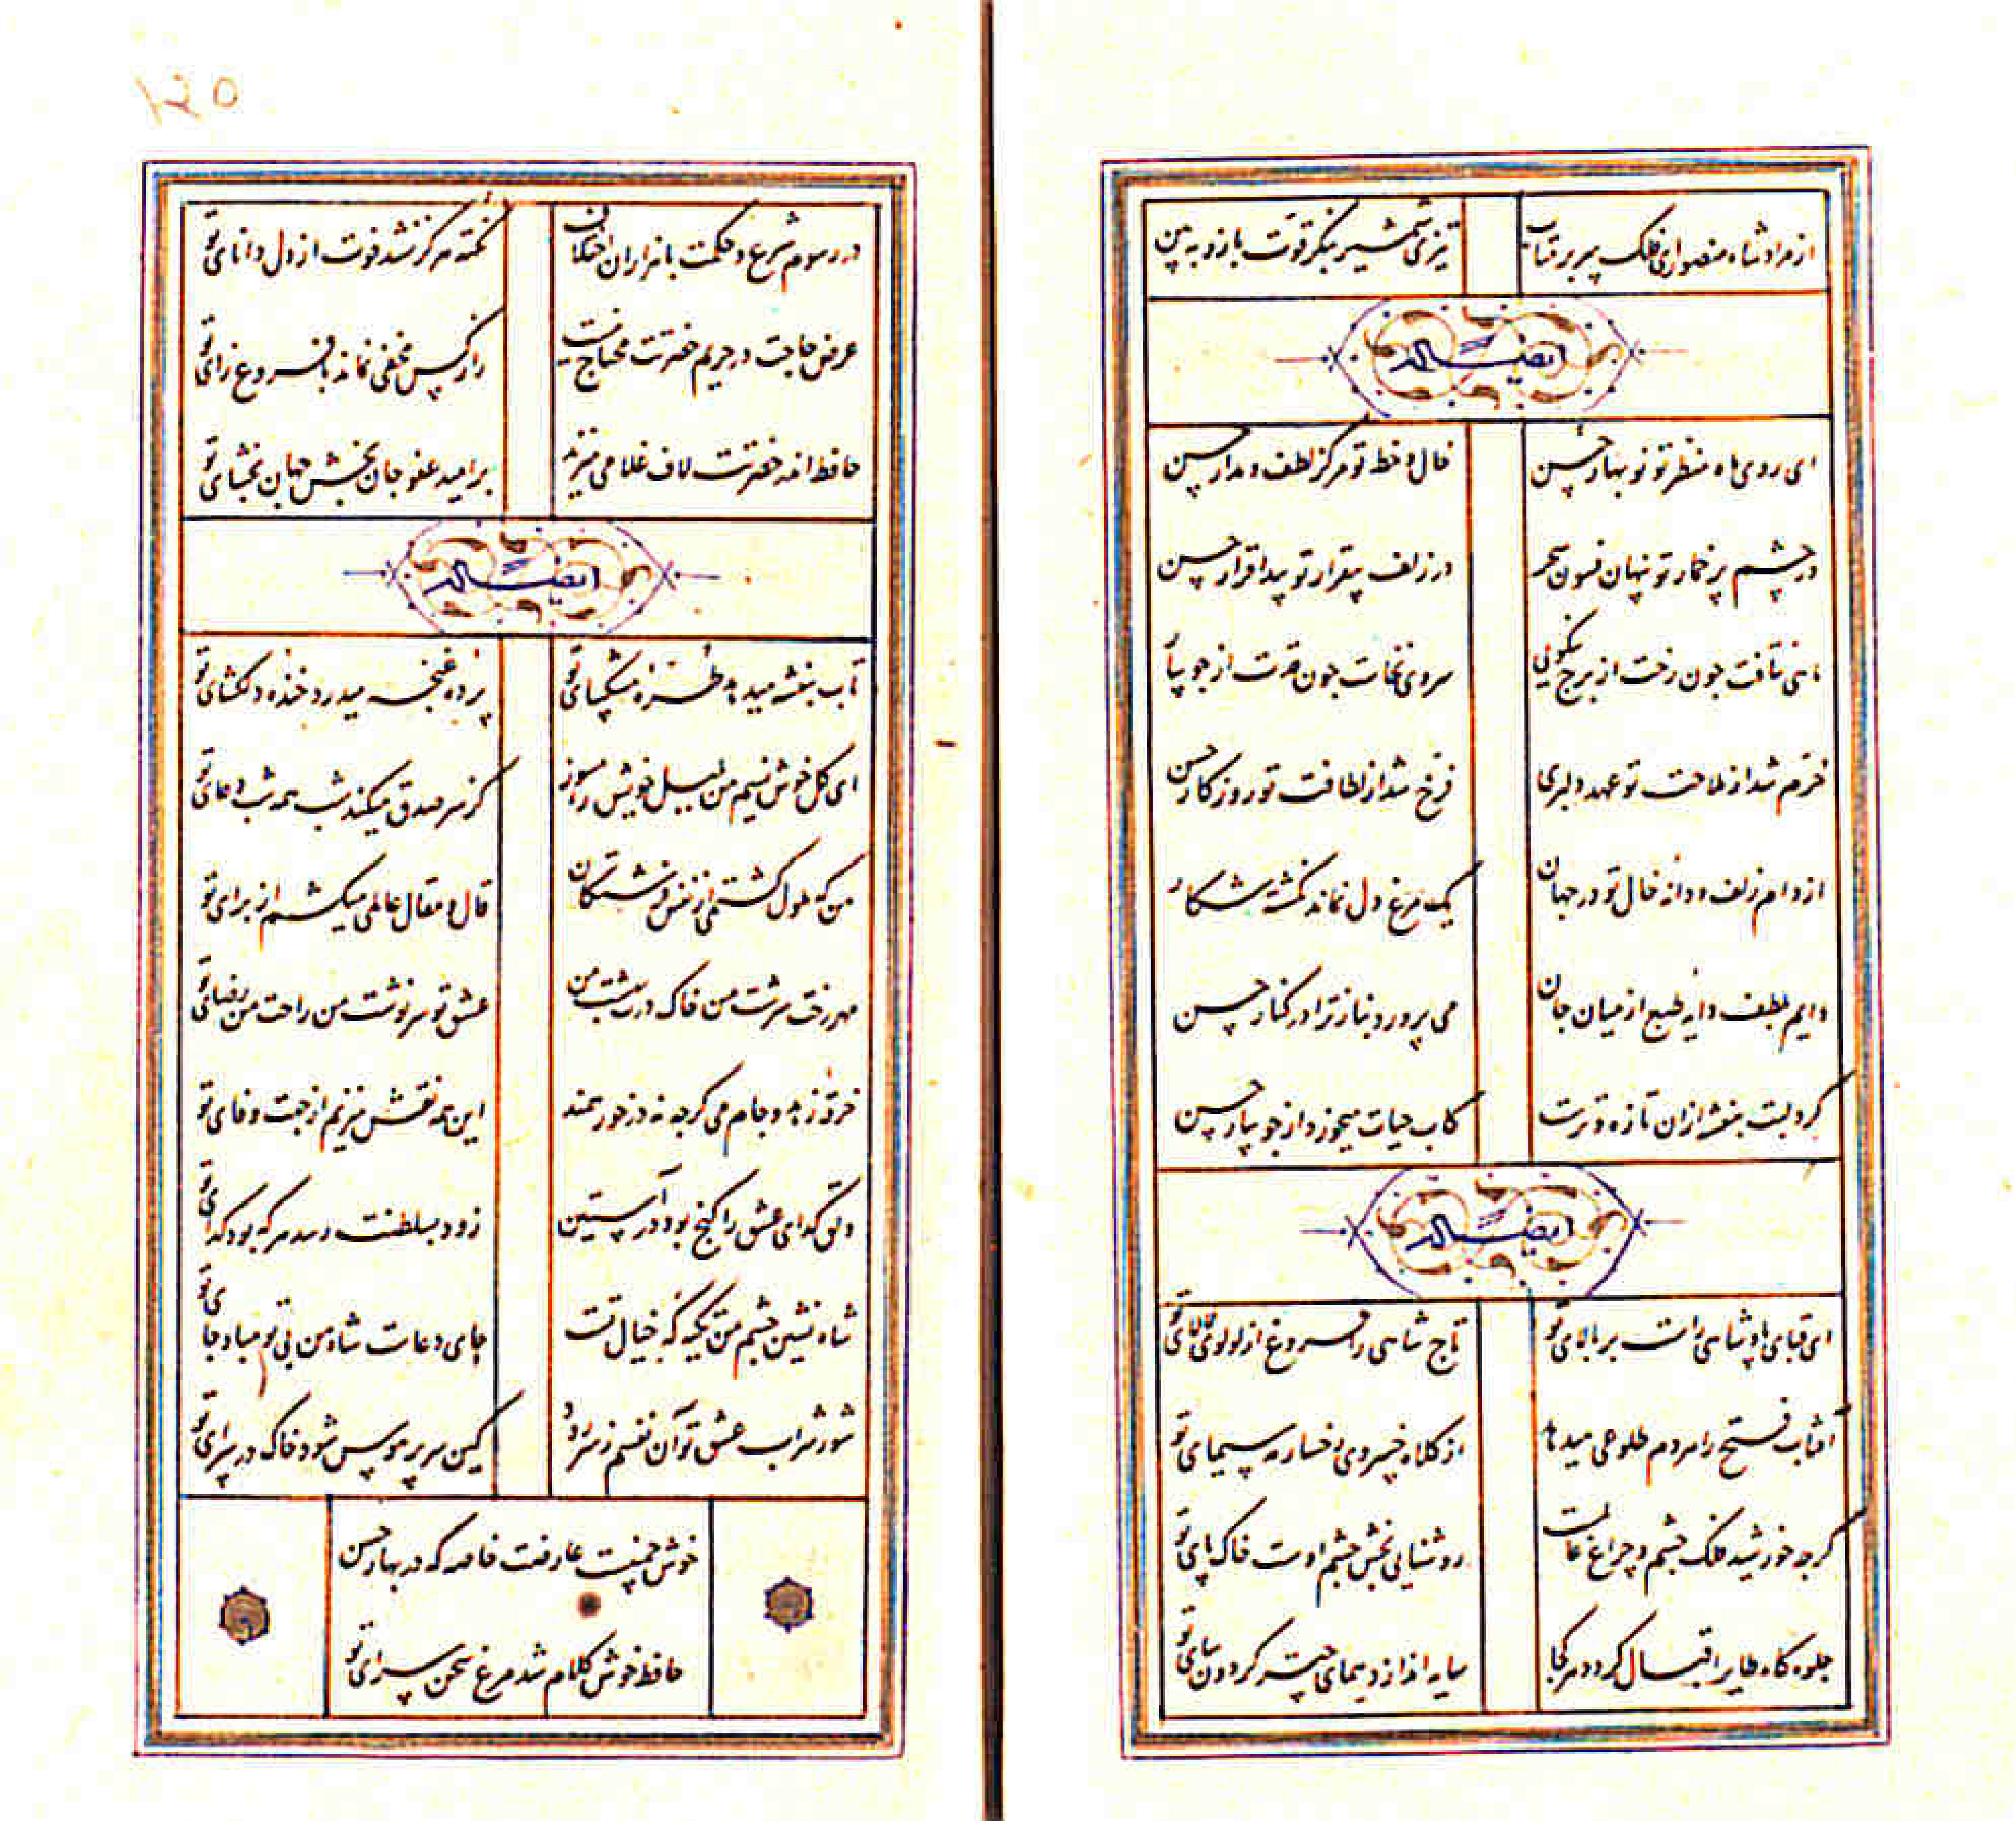 از مراد شاه منصور ای فلک سر بر متاب
تیزی شمشیر بنگر قوت بازو ببین
ایضاً له
ای روی ماه منظر تو نوبهار حسن
خال و خط تو مرکز لطف و مدار حسن
در چشم پر خمار تو پنهان فسون سحر
در زلف بیقرار تو پیدا قرار حسن
ماهی نتافت چون رخت از برج نیکویی
سروی نخاست چون قدت از جویبار
خرم شد از ملاحت تو عهد دلبری
فرخ شد از لطافت تو روزگار حسن
از دام زلف و دانه خال تو در جهان
یک مرغ دل نماند نگشته شکار
دایم بلطف دایه طبع از میان جان
می پرورد بناز ترا در کنار حسن
گرد لبت بنفشه از آن تازه و ترست
کاب حیات میخورد از جویبار حسن
ایضاً له
ای قبای پادشاهی راست بر بالای تو
تاج شاهی را فروغ از لولوی لالای تو
آفتاب فتح را هر دم طلوعی میدهد
از کلاه خسروی رخسار مه سیمای تو
گرچه خورشید فلک چشم و چراغ عالمست
روشنایی بخش چشم اوست خاک پای تو
جلوه گاه طایر اقبال گردد هر کجا
سایه اندازد همای چتر گردون سای تو
۱۲۵
در رسوم شرع و حکمت با هزاران اختلاف
نکته هرگز نشد فوت از دل دانای تو
عرض حاجت در حریم حضرتت محتاج نیست
راز کس مخفی نماند با فروغ رای تو
حافظ اندر حضرتت لاف غلامی میزند
بر امید عفو جان بخش جهان بخشای تو
ایضاً له
تاب بنفشه میدهد طره مشکسای تو
پرده غنچه میدرد خنده دلگشای تو
ای گل خوش نسیم من بلبل خویش را مسوز
کز سر صدق میکند شب همه شب دعای تو
من که ملول گشتمی از نفس فرشتگان
قال و مقال عالمی میکشم از برای تو
مهر رخت سرشت من خاک درت بهشت من
عشق تو سرنوشت من راحت من رضای تو
خرقه زهد و جام می گرچه نه در خور همند
این همه نقش میزنم از جهت وفای تو
دلق گدای عشق را گنج بود در آستین
زود بسلطنت رسد هر که بود گدای تو
شاه نشین چشم من تکیه گه خیال تست
جای دعاست شاه من بی تو مباد جای تو
شور شراب عشق تو آن نفسم ز سر رود
کین سر پر هوس شود خاک در سرای تو
خوش چمنیست عارضت خاصه که در بهار حسن
حافظ خوش کلام شد مرغ سخن سرای تو